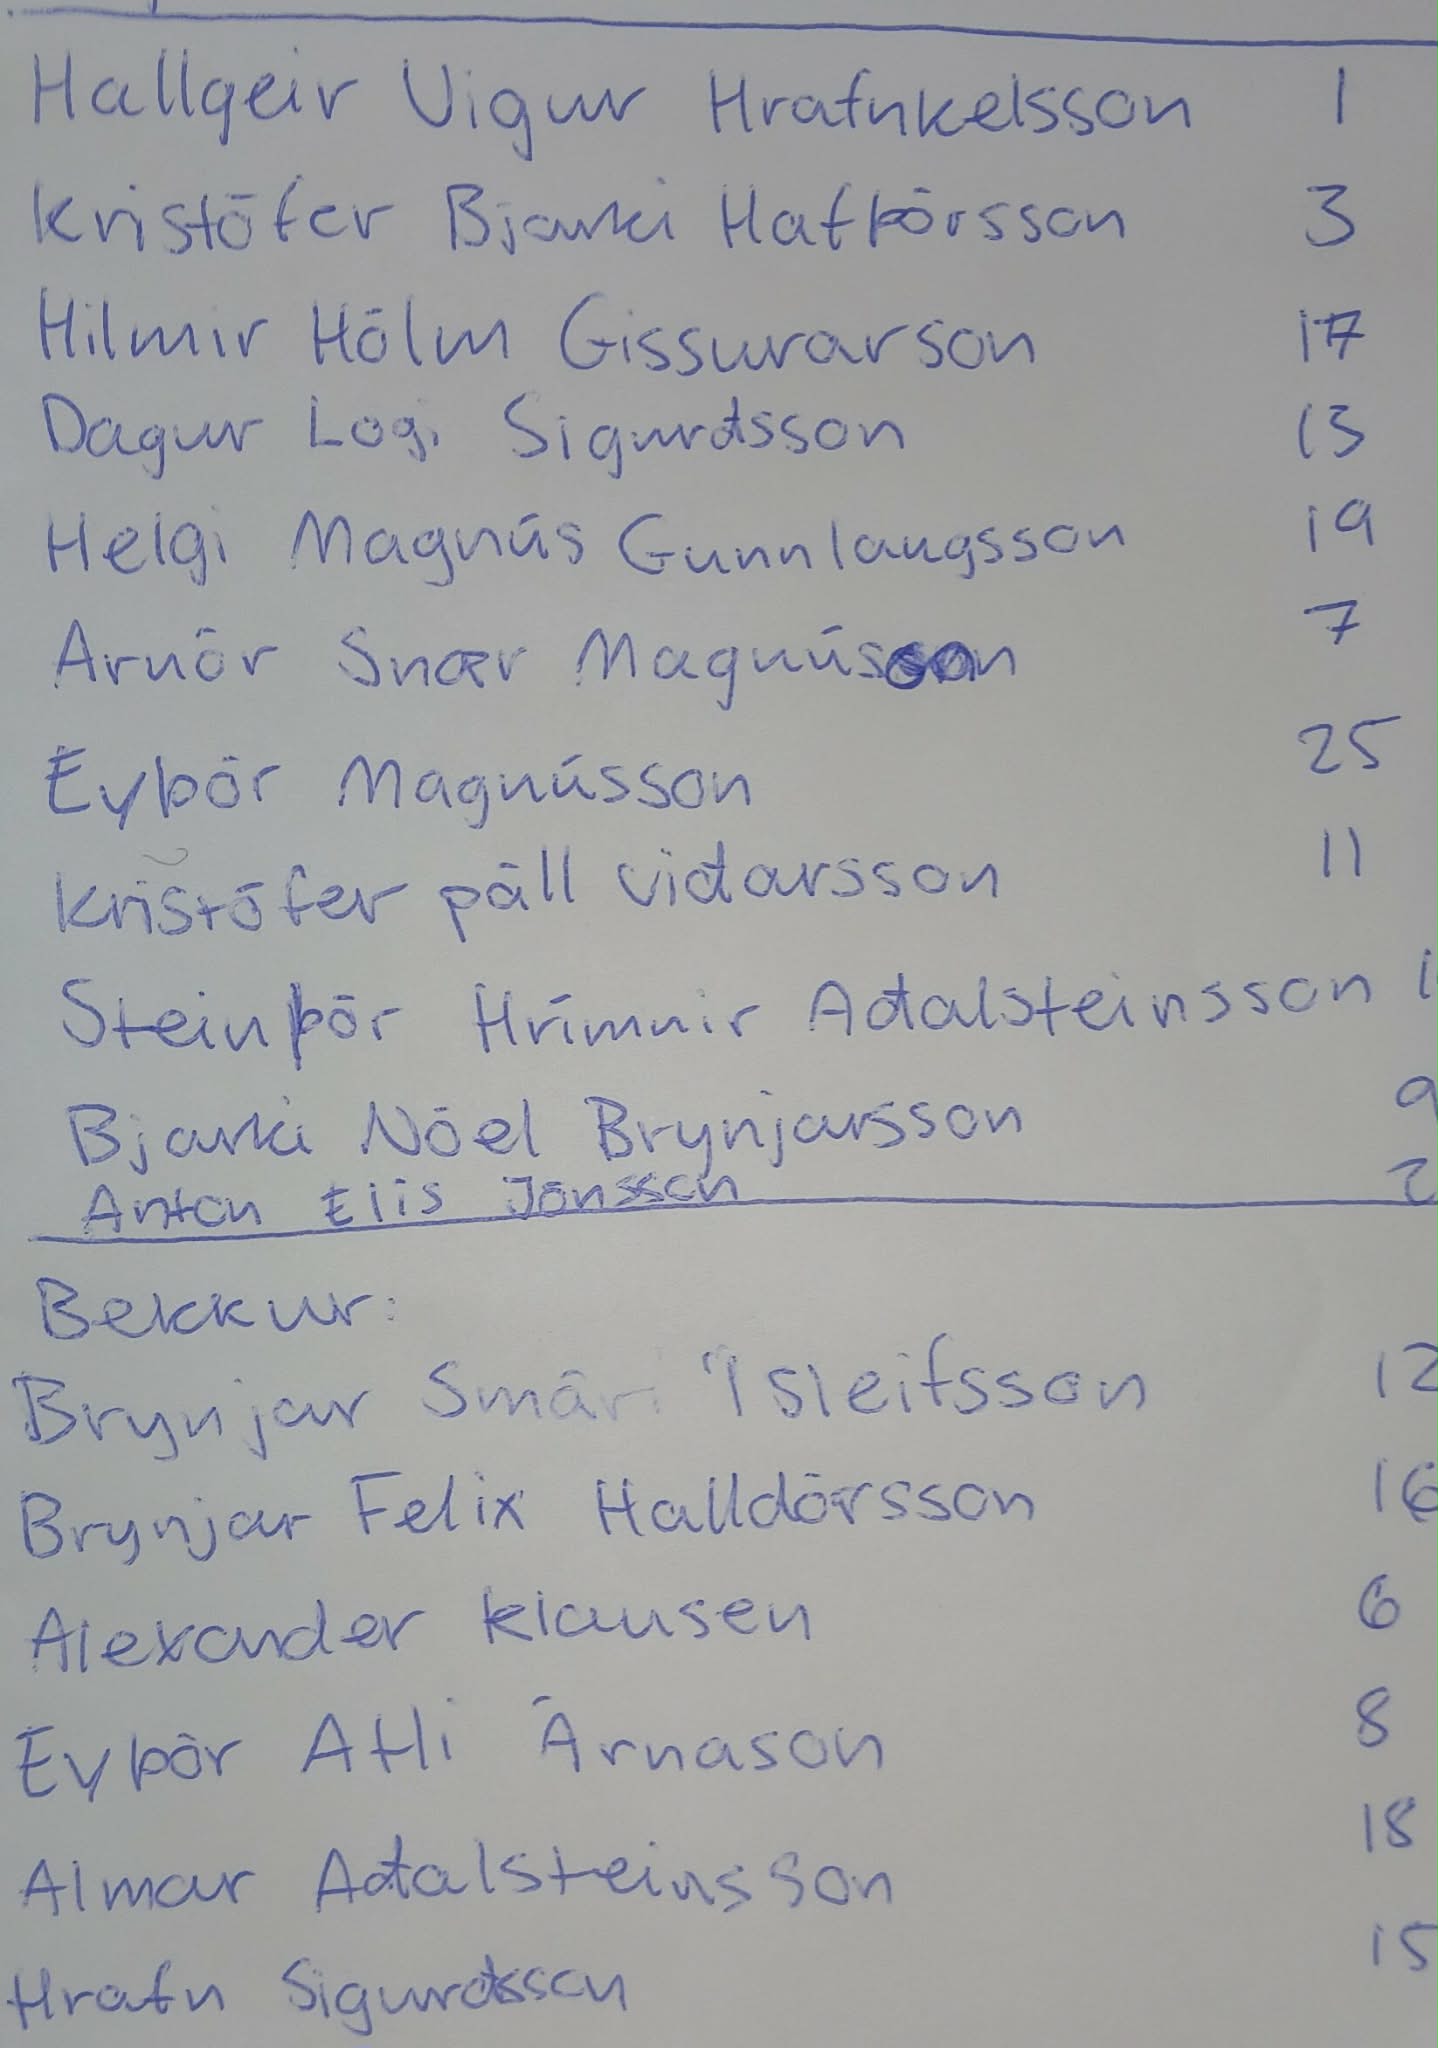 Hallgeir Vigur Hrafnkelsson 1
Kristófer Bjarki Hafþórsson 3
Hilmir Hólm Gissurarson 17
Dagur Logi Sigurðsson 13
Helgi Magnús Gunnlaugsson 19
Arnór Snær Magnússon 7
Eyþór Magnússon 25
Kristófer páll viðarsson 11
Steinþór Hrímnir Aðalsteinsson
Bjarki Nóel Brynjarsson 9
Anton Elis Jónsson 2
Bekkur:
Brynjar Smári Ísleifsson 12
Brynjar Felix Halldórsson 16
Alexander klausen 6
Eyþór Atli Árnason 8
Almar Aðalsteinsson 18
Hrafn Sigurðsson 15